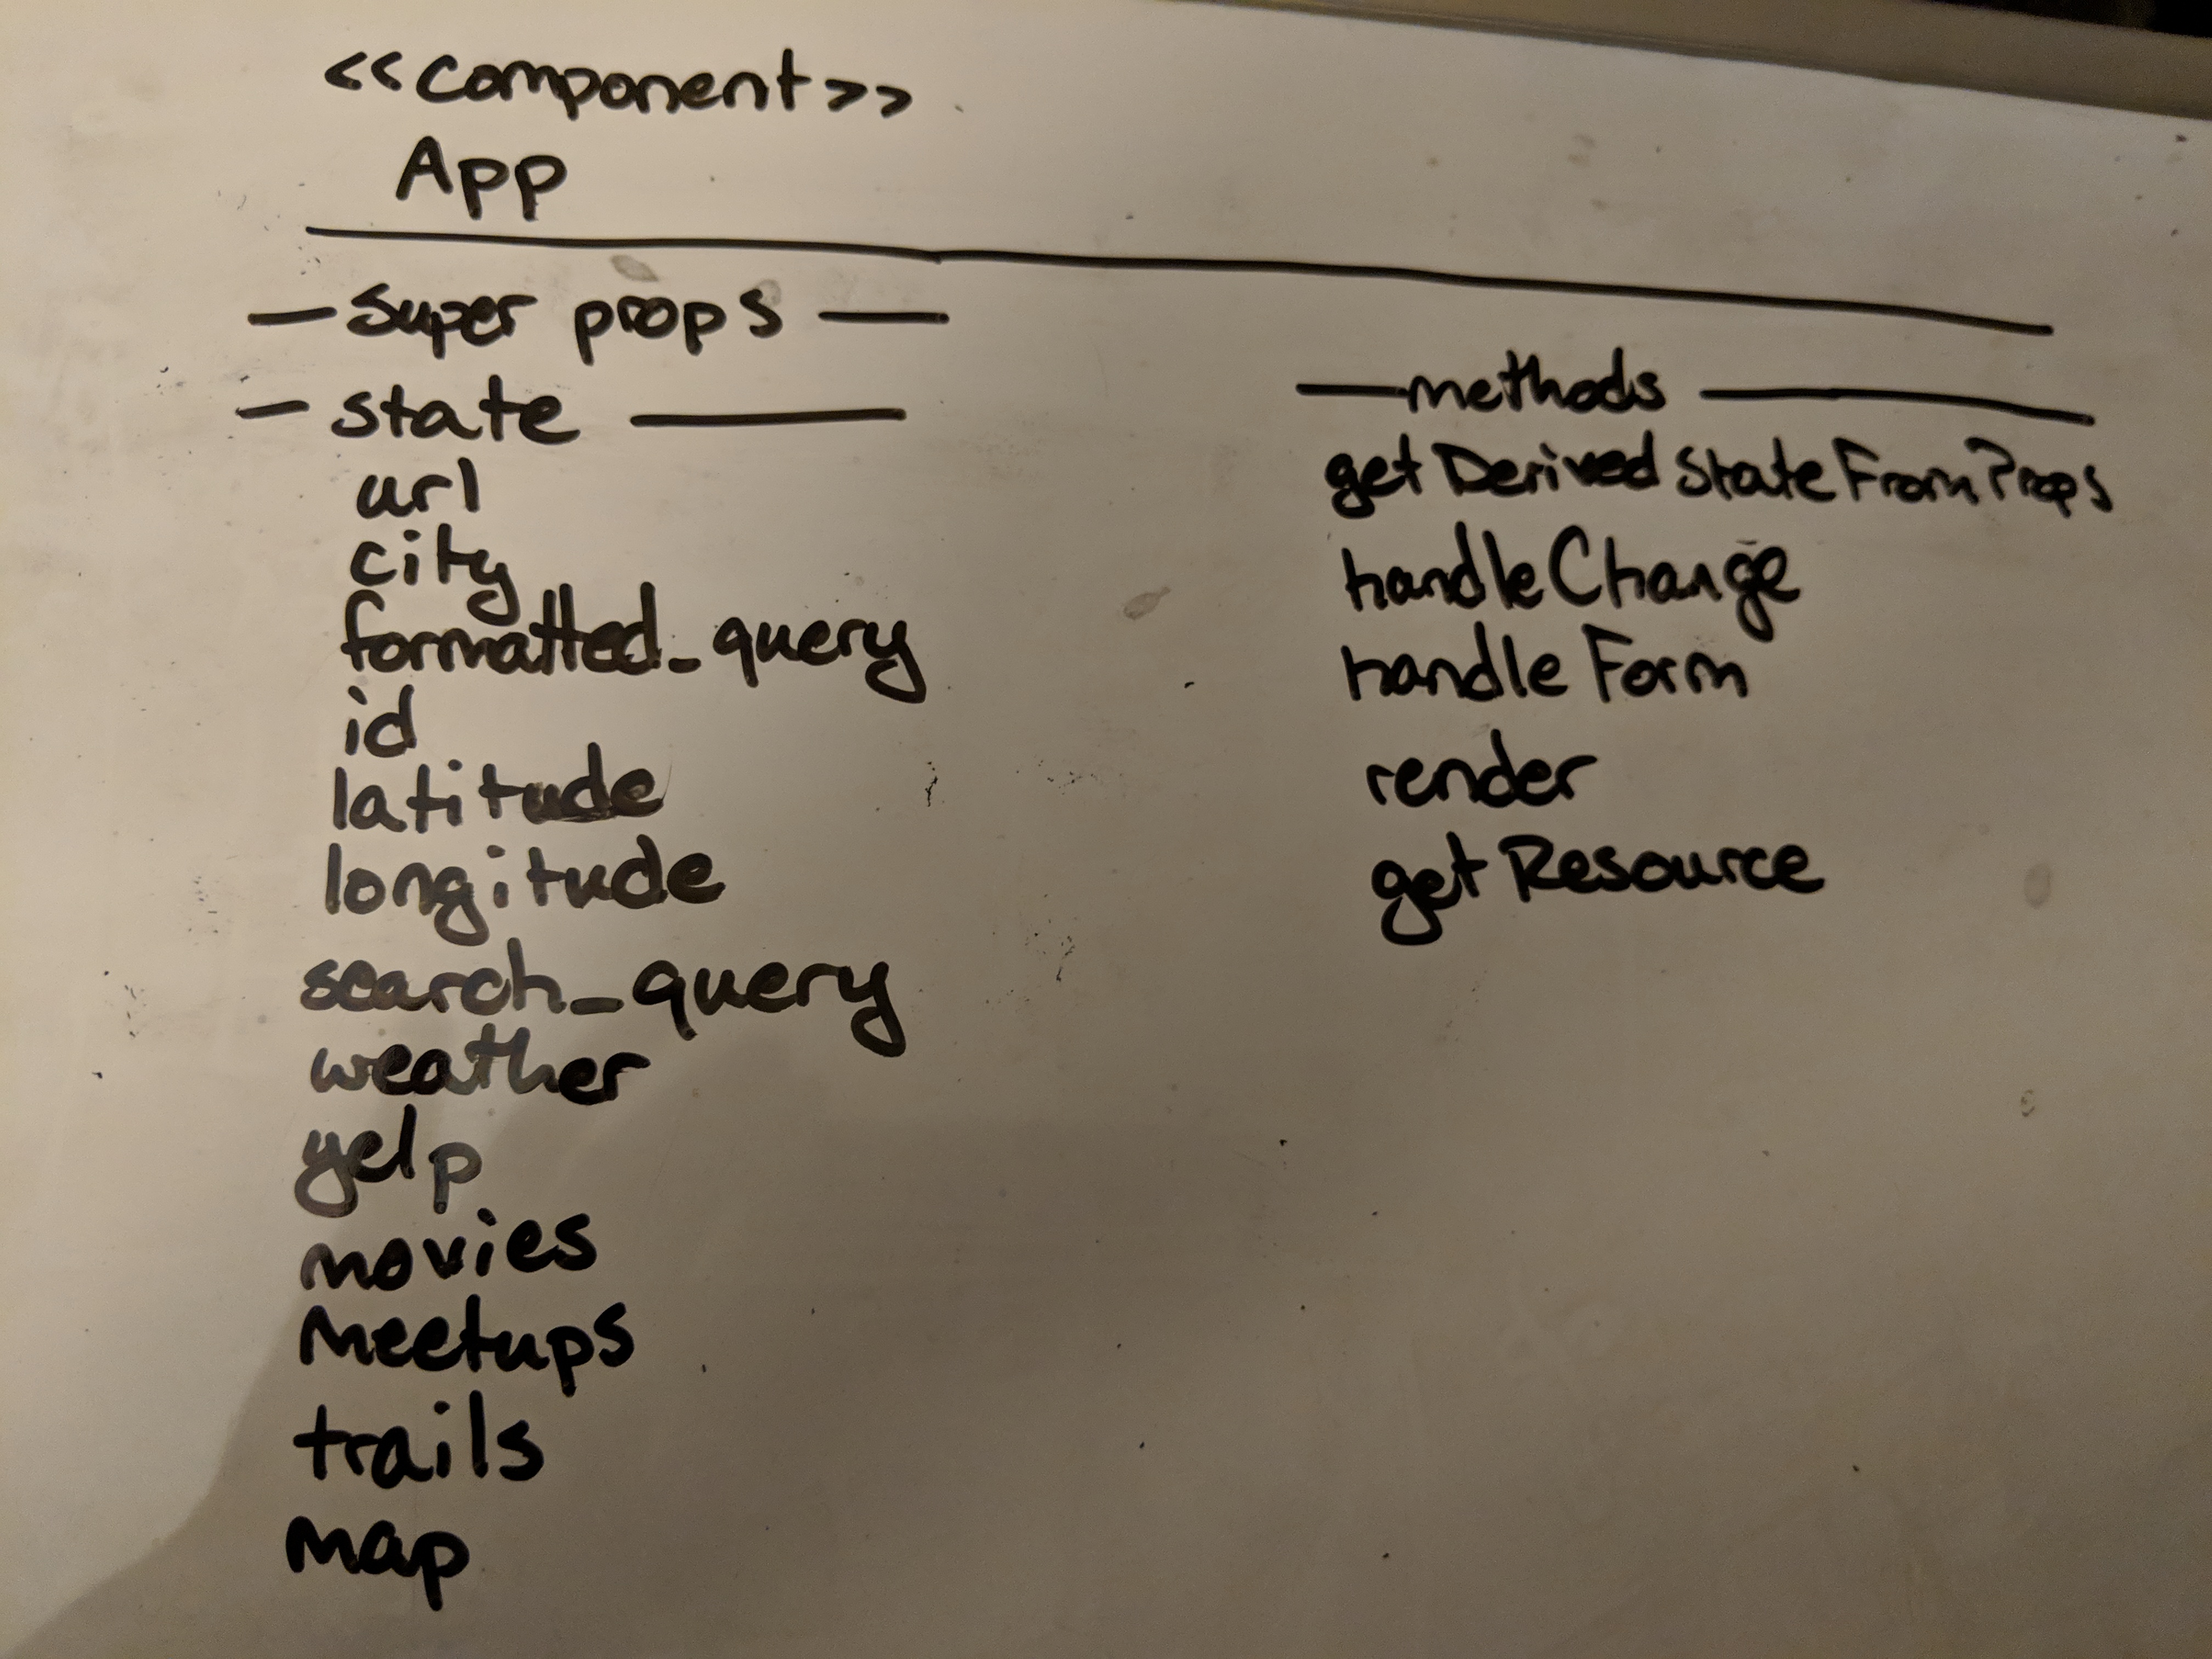 <<component>>
App
— Super props —
— state —
url
city
formatted_query
id
latitude
longitude
search_query
weather
yelp
movies
Meetups
trails
map
— methods —
getDerivedStateFromProps
handleChange
handleForm
render
getResource